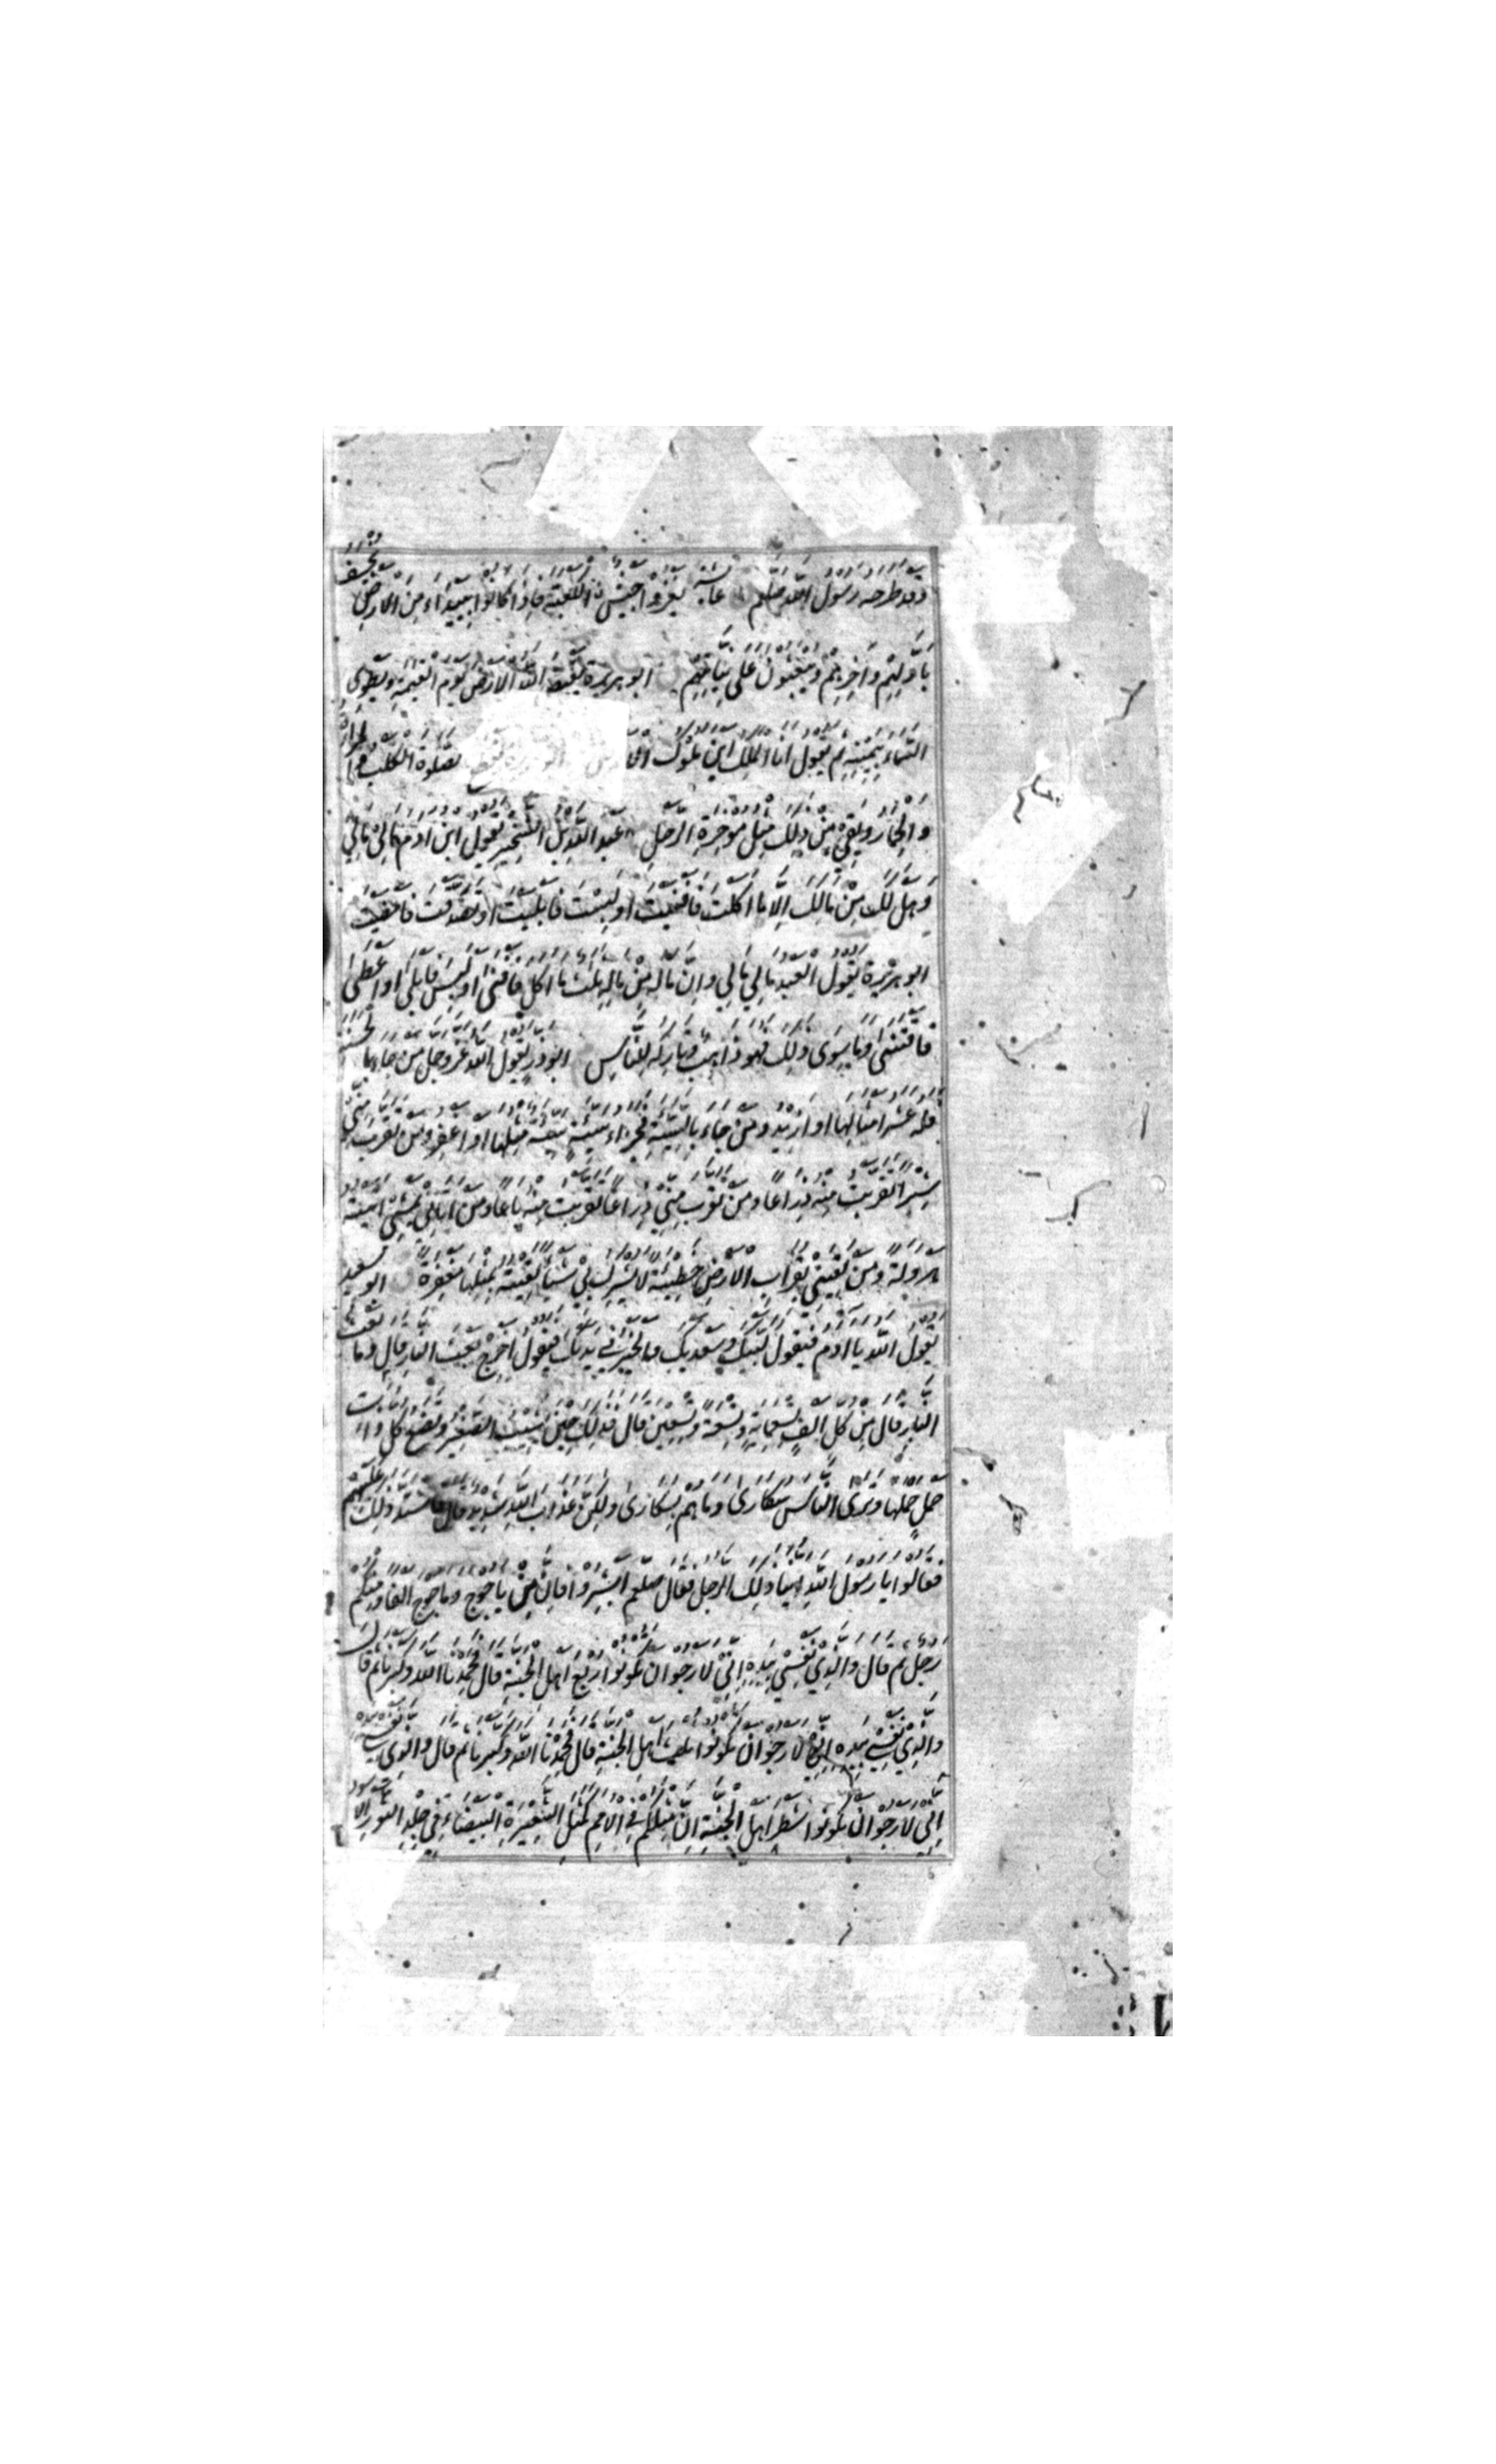 وقد طرحه رسول الله صلعم عايشة يغزوا جيش ن الكعبة فاذا كانوا ببيداء من الارض يخسف
باولهم واخرهم ويبعثون على نياتهم ابو هريرة يقبض الله الارض يوم القيمة ويطوى
السماء بيمينه ثم يقول انا الملك اين ملوك الارض ابو هريرة يقطع الصلوة الكلب والمراة
والحمار ويقي من ذلك مثل موخرة الرحل عبد الله بن الشخير يقول ابن ادم مالى مالى
وهل لك من مالك الا ما اكلت فافنيت او لبست فابليت او تصدقت فامضيت
ابو هريرة يقول العبد مالي مالي وان ماله من ماله ثلث ما اكل فافنى او لبس فابلى او اعطى
فاقتنى وما سوى ذلك فهو ذاهب وتاركه للناس ابو ذر يقول الله عز وجل من جاء بالحسنة
فله عشر امثالها او ازيد ومن جاء بالسيئة فجزاء سيئة سيئة مثلها او اغفر ومن تقرب منى
شبرا تقربت منه ذراعا ومن تقرب منى ذراعا تقربت منه باعا ومن اتاني يمشي اتيته
هرولة ومن لقينى بقراب الارض خطيئة لا يشرك بي شيئا لقيته بمثلها مغفرة ابو سعيد
يقول الله يا ادم فيقول لبيك وسعديك والخير في يديك فيقول اخرج بعث النار قال وما بعث
النار قال من كل الف تسعماية وتسعة وتسعين قال فذلك حين يشيب الصغير وتضع كل ذات
حمل حملها وترى الناس سكارى وما هم بسكارى ولكن عذاب الله شديد قال فاشتد ذلك عليهم
فقالوا يا رسول الله اينا ذلك الرجل فقال صلعم ابشروا فان من ياجوج وماجوج الفا ومنكم
رجل ثم قال والذي نفسي بيده انى لارجوا ان تكونوا ربع اهل الجنة قال فحمدنا الله وكبرنا ثم قال
والذي نفسي بيده انى لارجوا ان تكونوا ثلث اهل الجنة قال فحمدنا الله وكبرنا ثم قال والذي نفسي بيده
انى لارجوا ان تكونوا شطر اهل الجنة ان مثلكم في الامم كمثل الشعيرة البيضاء في جلد الثور الاسود